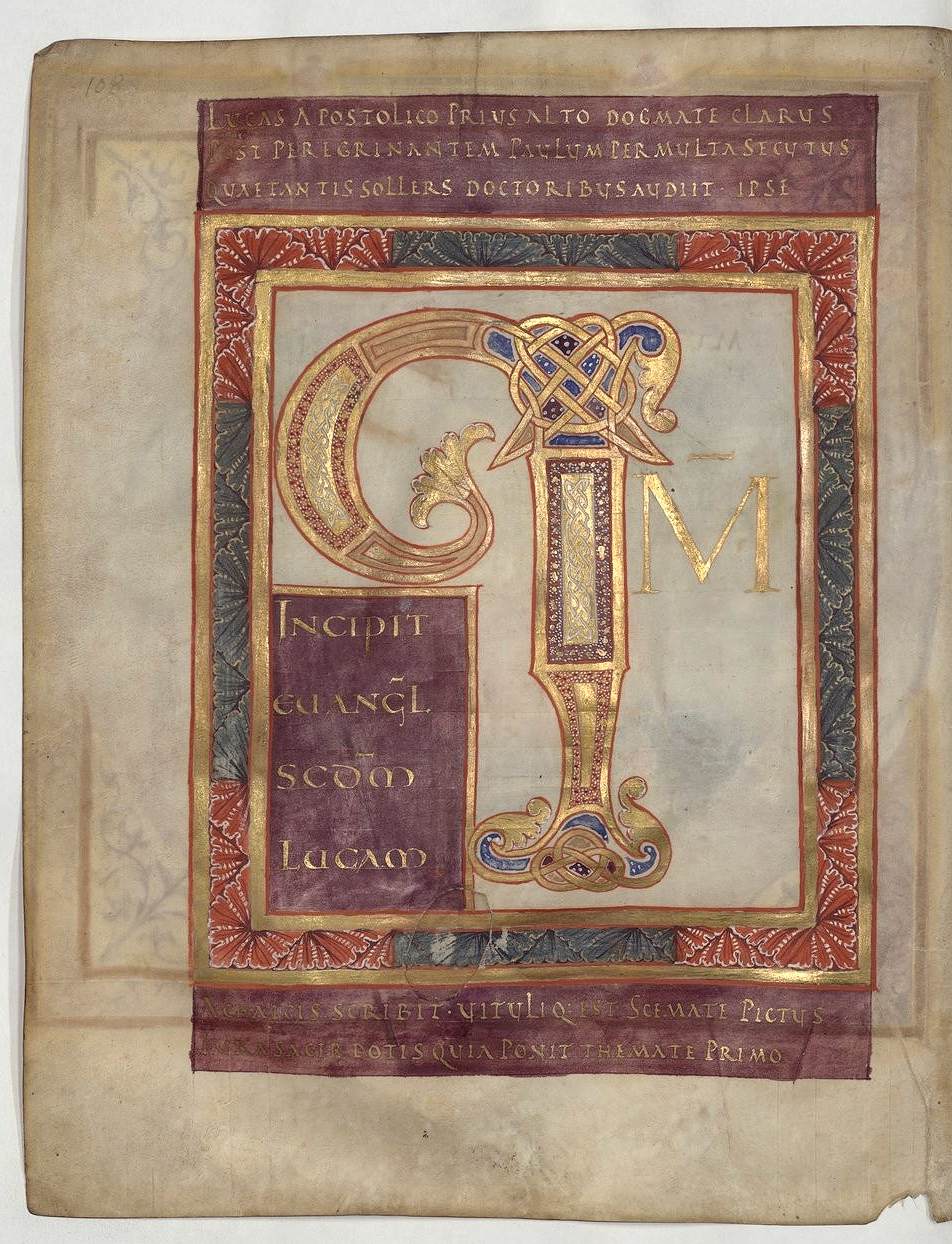 108
LUCAS APOSTOLICO PRIUS ALTO DOGMATE CLARUS
POST PEREGRINANTEM PAULUM PER MULTA SECUTUS
QUAE TANTIS SOLLERS DOCTORIBUS AUDIIT · IPSE
Q
M̄
INCIPIT
EUANG̃L
SCDM̄
LUCAM
ACHAICIS SCRIBIT · UITULIQ: EST SCEMATE PICTUS
SACERDOTIS QUIA PONIT THEMATE PRIMO